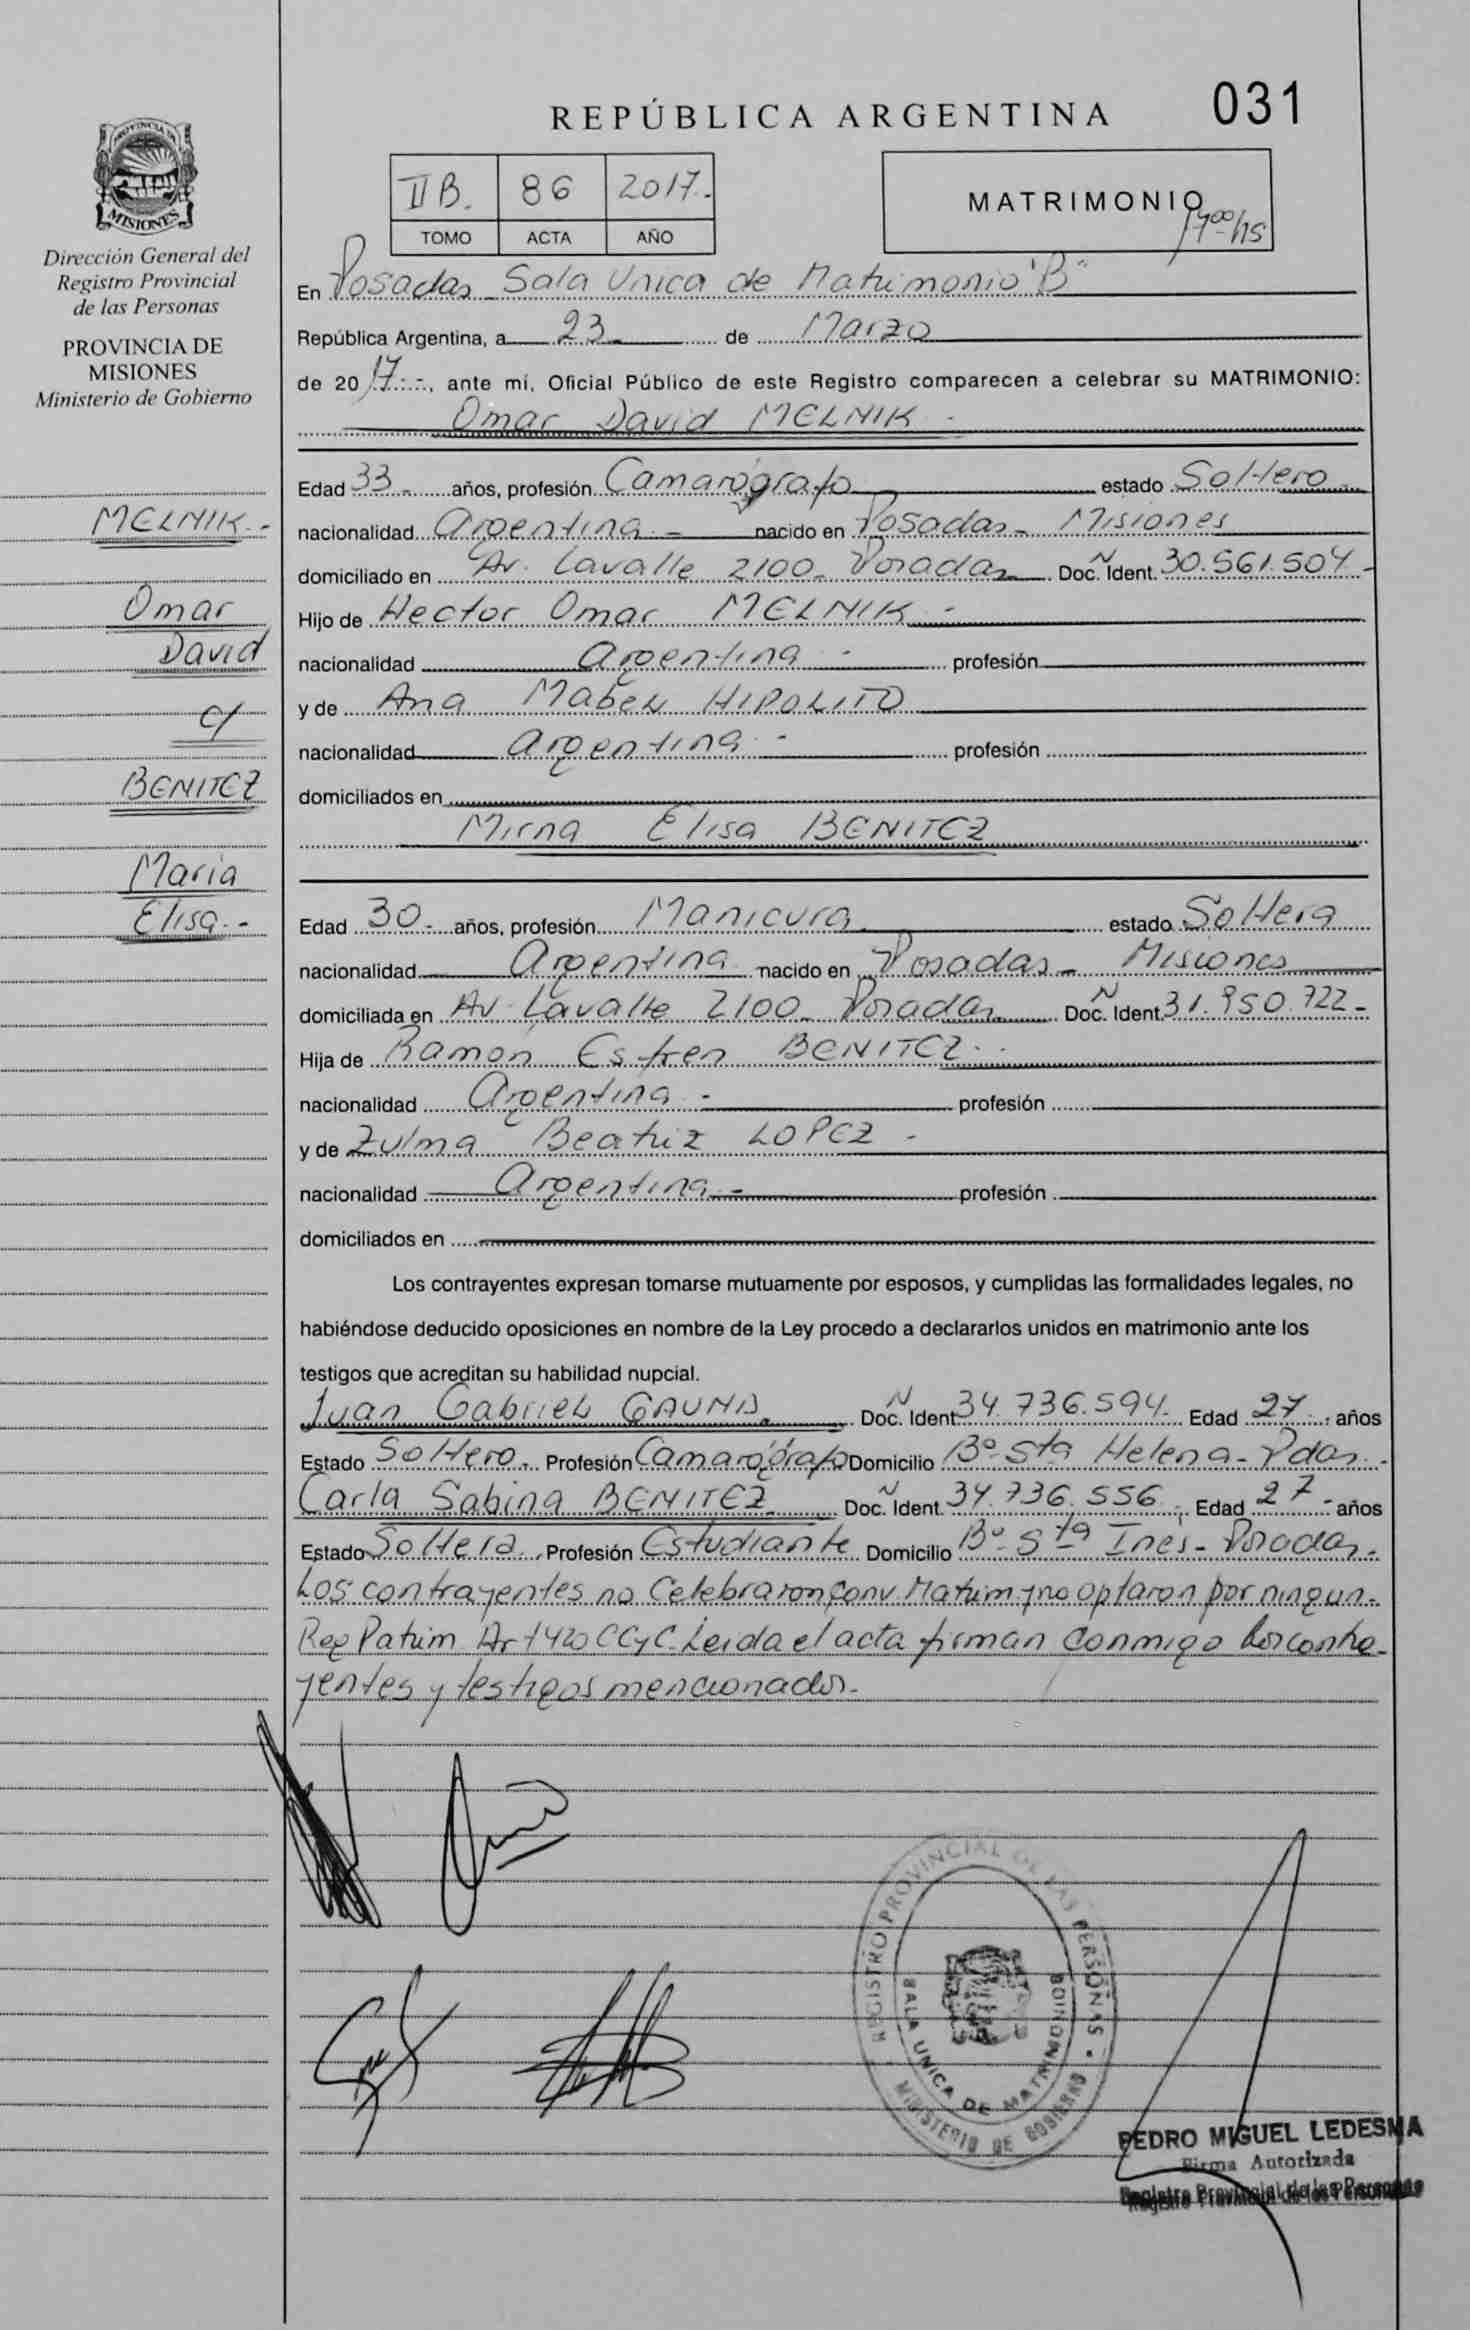 031
REPÚBLICA ARGENTINA
PROVINCIA DE
MISIONES
Dirección General del
Registro Provincial
de las Personas
PROVINCIA DE
MISIONES
Ministerio de Gobierno
IIB. 86 2017.-
TOMO ACTA AÑO
MATRIMONIO
1700 hs
En Posadas Sala Unica de Matrimonio "B"
República Argentina, a 23 de Marzo
de 2017.-, ante mí, Oficial Público de este Registro comparecen a celebrar su MATRIMONIO:
Omar David MELNIK.-
MELNIK.-
Omar
David
c/
BENITEZ
Maria
Elisa.-
Edad 33.- años, profesión Camarógrafo estado Soltero.-
nacionalidad Argentina.- nacido en Posadas- Misiones
domiciliado en Av. Lavalle 2100- Posadas Doc. Ident. N 30.561.504-
Hijo de Hector Omar MELNIK.-
nacionalidad Argentina.- profesión
y de Ana Mabel HIPOLITO
nacionalidad Argentina.- profesión
domiciliados en
Mirna Elisa BENITEZ
Edad 30.- años, profesión Manicura estado Soltera
nacionalidad Argentina nacido en Posadas- Misiones
domiciliada en Av. Lavalle 2100- Posadas Doc. Ident. N 31.950.722-
Hija de Ramon Esfren BENITEZ.-
nacionalidad Argentina.- profesión
y de Zulma Beatriz LOPEZ.-
nacionalidad Argentina.- profesión
domiciliados en
Los contrayentes expresan tomarse mutuamente por esposos, y cumplidas las formalidades legales, no
habiéndose deducido oposiciones en nombre de la Ley procedo a declararlos unidos en matrimonio ante los
testigos que acreditan su habilidad nupcial.
Juan Gabriel GAUNA. Doc. Ident. N 34.736.594.- Edad 27.- años
Estado Soltero.- Profesión Camarógrafo Domicilio Bº Sta Helena- Pdas.-
Carla Sabina BENITEZ Doc. Ident. N 34.736.556.-, Edad 27.- años
Estado Soltera. Profesión Estudiante Domicilio Bº Sta Ines- Posadas.-
Los contrayentes no Celebraron conv. Matrim. y no optaron por ningun.-
Reg Patrim Art 420 CCyC. Leida el acta firman conmigo los contra-
yentes y testigos mencionados.-
REGISTRO PROVINCIAL DE LAS PERSONAS
SALA UNICA DE MATRIMONIOS
MINISTERIO DE GOBIERNO
PEDRO MIGUEL LEDESMA
Firma Autorizada
Registro Provincial de las Personas